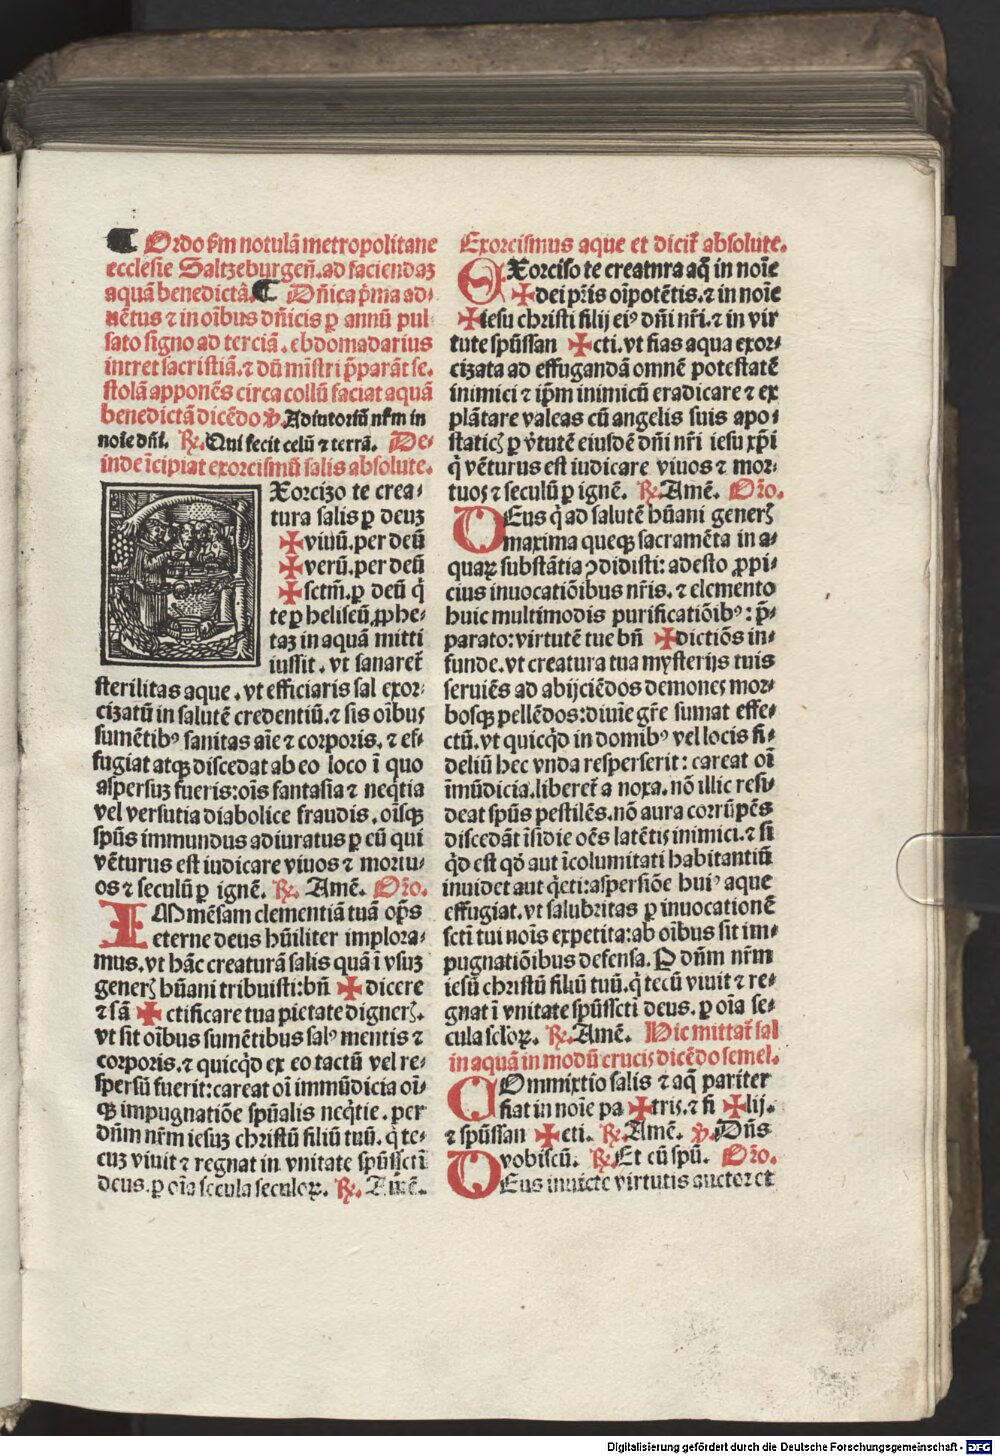 ¶ Ordo ẜm notulā metropolitane
ecclesie Saltzeburgeñ. ad faciendaȝ
aquā benedictā. ¶ Dñica pͥma ad-
uētus ⁊ in oībus dñicis ꝑ annū pul
sato signo ad terciā. ebdomadarius
intret sacristiā. ⁊ dū mīstri p̄parāt se.
stolā apponēs circa collū faciat aquā
benedictā dicēdo ℣. Adiutoriū nr̄m in
noīe dñi. ℞. Qui fecit celū ⁊ terrā. De-
inde īcipiat exorcismū salis absolute.
EXorcizo te crea-
tura salis ꝑ deuȝ
✠ viuū. per deū
✠ verū. per deū
✠ sctm̄. ꝑ deū q̇
te ꝑ heliseū ꝓphe-
taȝ in aquā mitti
iussit. vt sanaret᷑
sterilitas aque. vt efficiaris sal exor-
cizatū in salutē credentiū. ⁊ sis oībus
sumētibꝰ sanitas aīe ⁊ corporis. ⁊ ef-
fugiat atqꝫ discedat ab eo loco ī quo
aspersuȝ fueris: oīs fantasia ⁊ neq̇tia
vel versutia diabolice fraudis. oīsqꝫ
spūs immundus adiuratus ꝑ eū qui
vēturus est iudicare viuos ⁊ mortu-
os ⁊ seculū ꝑ ignē. ℞. Amē. Oro.
IMmēsam clementiā tuā opṣ
eterne deus hūiliter implora-
mus. vt hāc creaturā salis quā ī vsuȝ
generꝭ hūani tribuisti: bñ ✠ dicere
⁊ sā ✠ ctificare tua pietate dignerꝭ.
vt sit oībus sumētibus salꝰ mentis ⁊
corporis. ⁊ quicq̇d ex eo tactū vel re-
spersū fuerit: careat oī immūdicia oī-
qꝫ impugnatiōe spūalis neq̇tie. per
dñm nr̄m iesuȝ christū filiū tuū. q̇ te-
cuȝ viuit ⁊ regnat in vnitate spūsscti
deus. ꝑ oīa secula seculoꝝ. ℞. Amē.
Exorcismus aque et dicit᷑ absolute.
EXorciso te creatura aq̄ in noīe
✠ dei pr̄is oīpotētis. ⁊ in noīe
✠ iesu christi filij eiꝰ dñi nr̄i. ⁊ in vir
tute spūssan ✠ cti. vt fias aqua exor-
cizata ad effugandā omnē potestatē
inimici ⁊ ip̄m inimicū eradicare ⁊ ex
plātare valeas cū angelis suis apo-
staticꝭ ꝑ v̓tutē eiusdē dñi nr̄i iesu xp̄i
q̇ vēturus est iudicare viuos ⁊ mor-
tuoꝭ ⁊ seculū ꝑ ignē. ℞. Amē. Oro.
DEus q̇ ad salutē hūani generꝭ
maxima queqꝫ sacramēta in a-
quaꝝ substātia ꝯdidisti: adesto ꝓpi-
cius inuocatiōibus nr̄is. ⁊ elemento
huic multimodis purificatiōibꝰ: p̄-
parato: virtutē tue bñ ✠ dictiōs in-
funde. vt creatura tua mysterijs tuis
seruiēs ad abijciēdos demones mor-
bosqꝫ pellēdos: diuīe gr̄e sumat effe-
ctū. vt quicq̇d in domibꝰ vel locis fi-
deliū hec vnda resperserit: careat oī
īmūdicia. liberet᷑ a noxa. nō illic resi-
deat spūs pestilēs. nō aura corrūpēs
discedāt īsidie oēs latētis inimici. ⁊ si
q̇d est qd̓ aut īcolumitati habitantiū
inuidet aut q̇eti: aspersiōe huiꝰ aque
effugiat. vt salubritas ꝑ inuocationē
scti tui noīs expetita: ab oībus sit im-
pugnatiōibus defensa. P dñm nr̄m
iesū christū filiū tuū. q̇ tecū viuit ⁊ re-
gnat ī vnitate spūsscti deus. ꝑ oīa se-
cula scloꝝ. ℞. Amē. Hic mittat᷑ sal
in aquā in modū crucis dicēdo semel.
COmmixtio salis ⁊ aq̄ pariter
fiat in noīe pa ✠ tris. ⁊ fi ✠ lij.
⁊ spūssan ✠ cti. ℞. Amē. ℣. Dñs
vobiscū. ℞. Et cū spū. Oro.
DEus inuicte virtutis auctor et
Digitalisierung gefördert durch die Deutsche Forschungsgemeinschaft - DFG